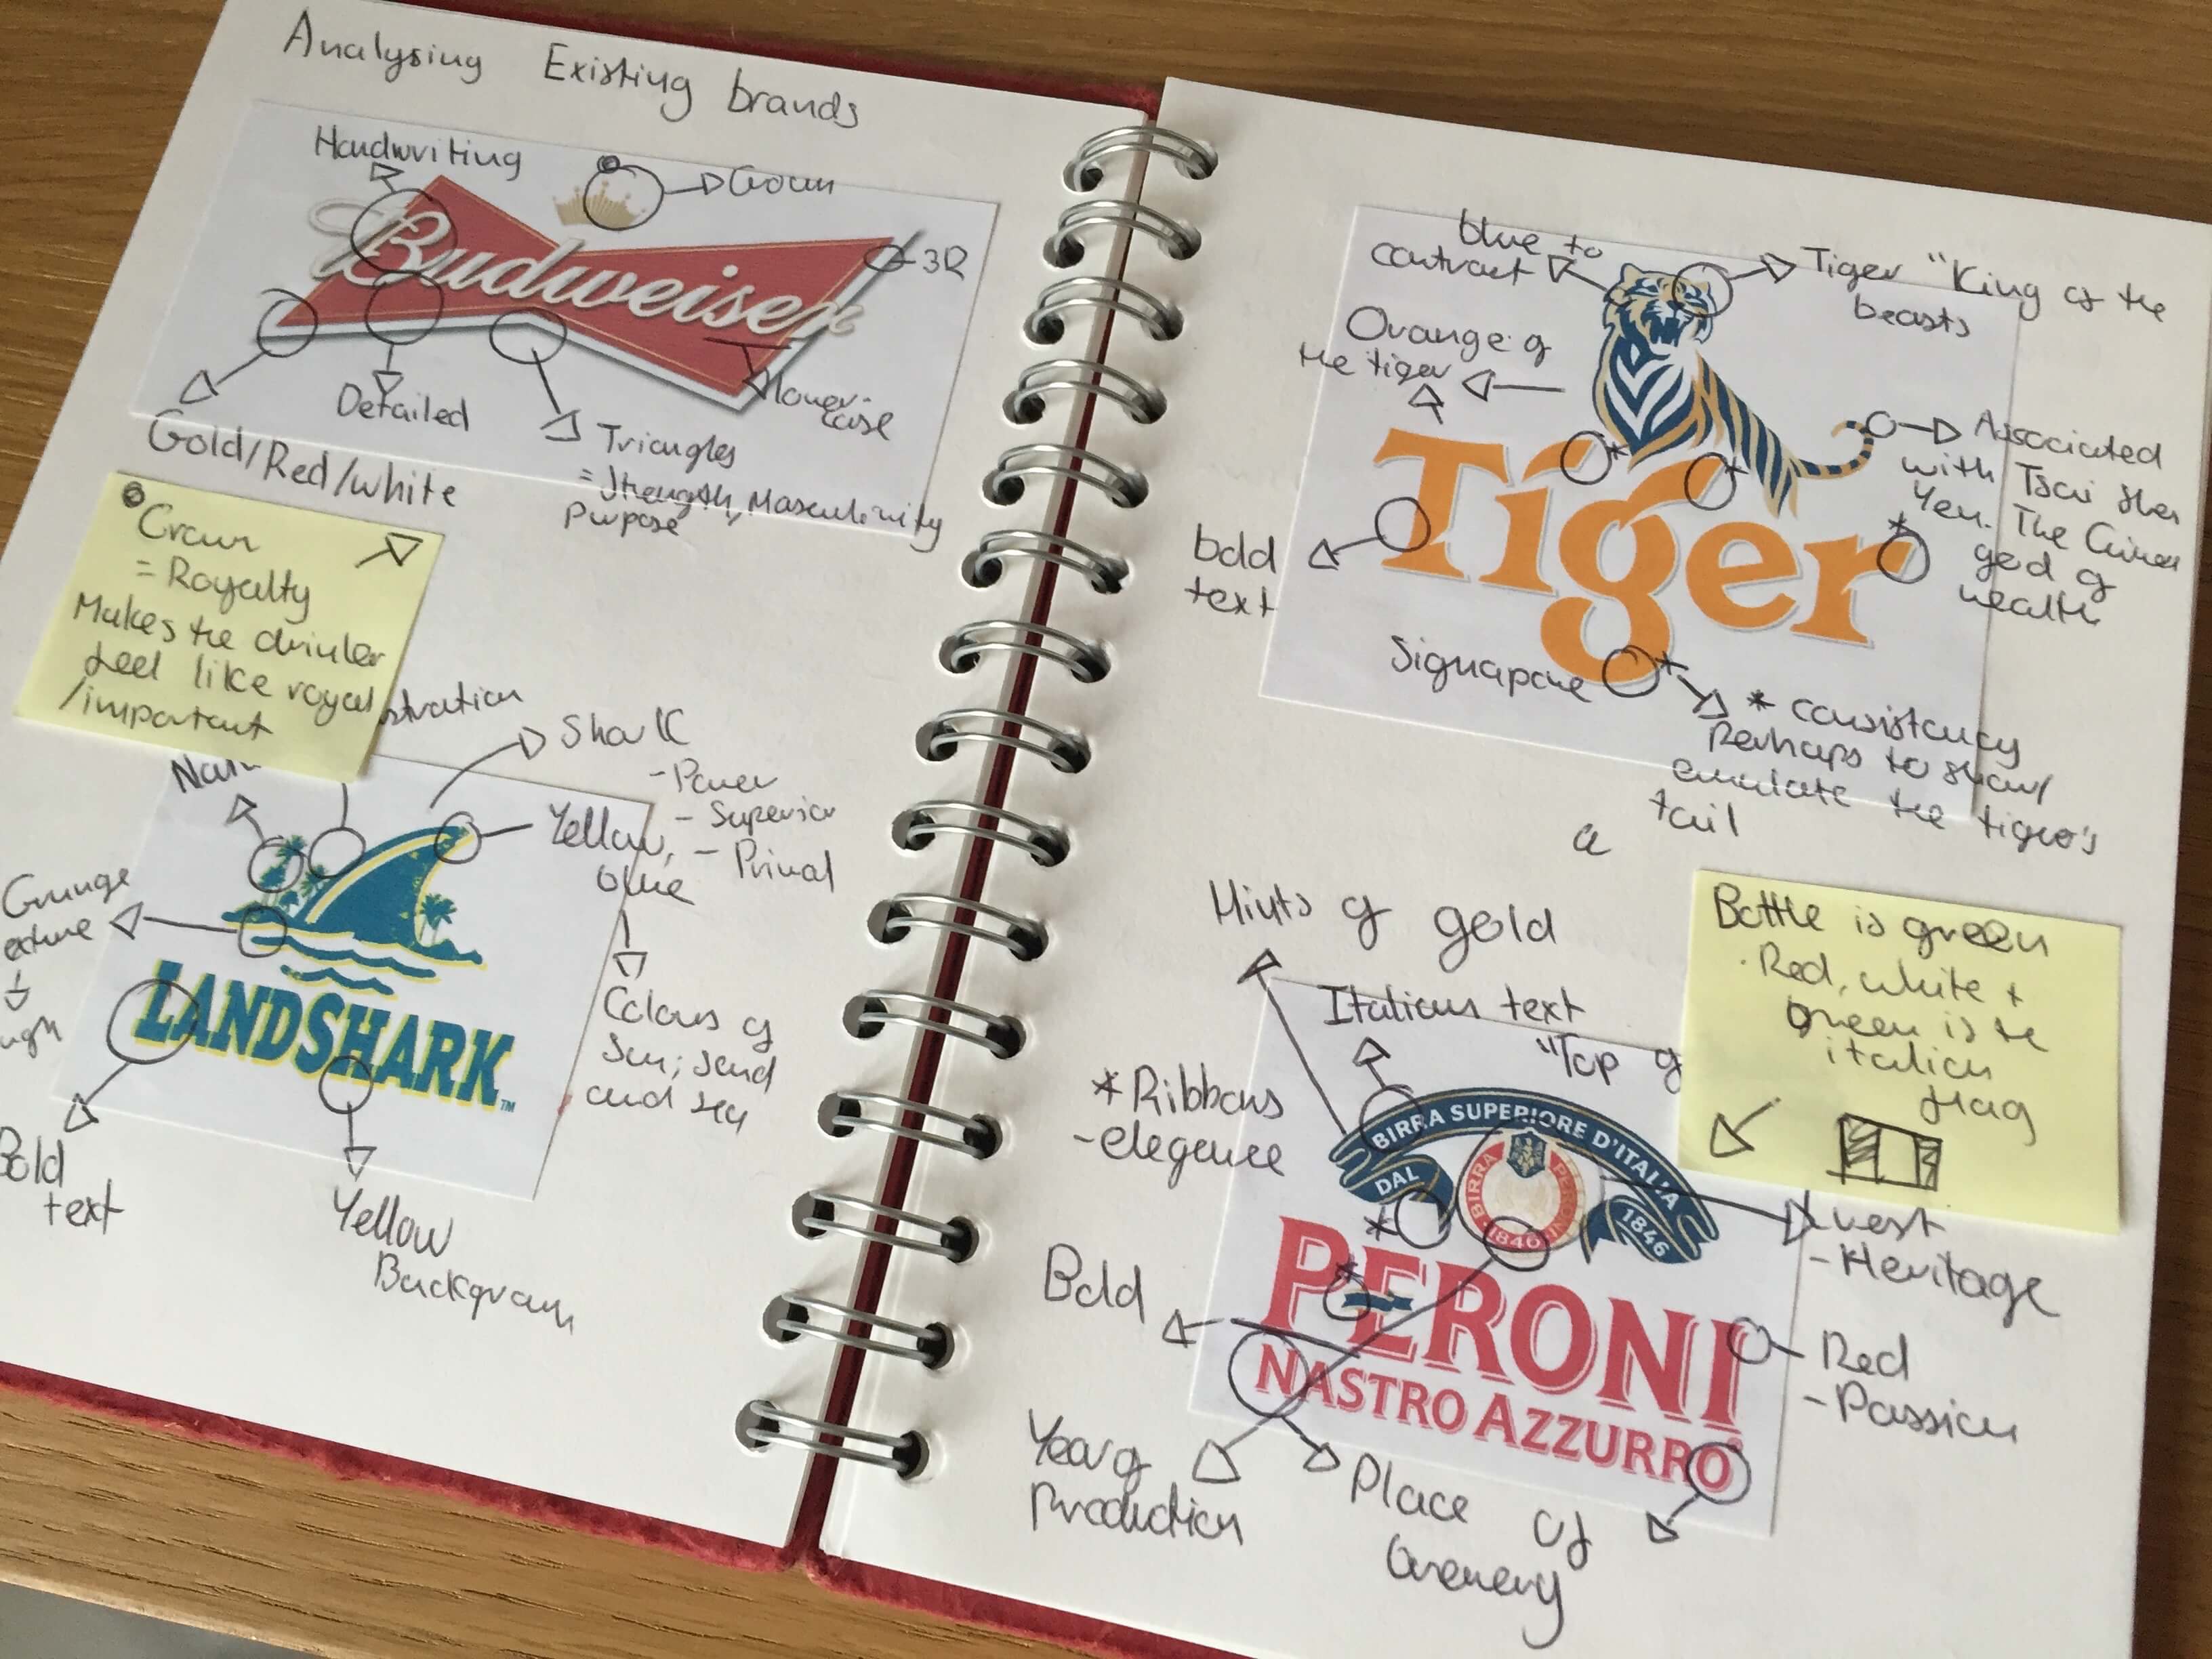 Analysing Existing brands
Handwriting
Crown
Budweiser
3D
Detailed
lower
case
Gold/Red/white
Triangles
= Strength, Masculinity
Purpose
Crown
= Royalty
Makes the drinker
feel like royal
/important
stration
Shark
- Power
- Superior
- Primal
Yellow,
blue
Grunge
exture
ugh
LANDSHARK TM
Colours of
Sun, Sand
and sea
Bold
text
Yellow
Backgroun
blue to
contrast
Tiger "King of the
beasts
Orange of
the tiger
Tiger
Associated
with Tsai Shen
Yen. The Chinese
god of
wealth
bold
text
Signapore
* consistancy
Perhaps to show/
emulate the tigers's
tail
a
Hints of gold
Italians text
"Top of
Bottle is green
Red, white +
Green is the
italian
flag
* Ribbons
- elegence
BIRRA SUPERIORE D'ITALIA
DAL 1846
BIRRA PERONI
1846
PERONI
NASTRO AZZURRO
- Heritage
Bold
Red
- Passion
Year of
Production
Place of
Brewery